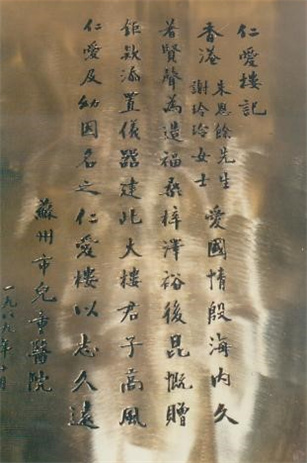 仁愛樓記
香港 朱恩餘先生 謝玲玲女士 愛國情殷海内久
著賢聲為造福桑梓澤裕後昆慨贈
鉅款添置儀器建此大樓君子高風
仁愛及幼因名之仁愛樓以志久遠
蘇州市兒童醫院
一九八九年十月